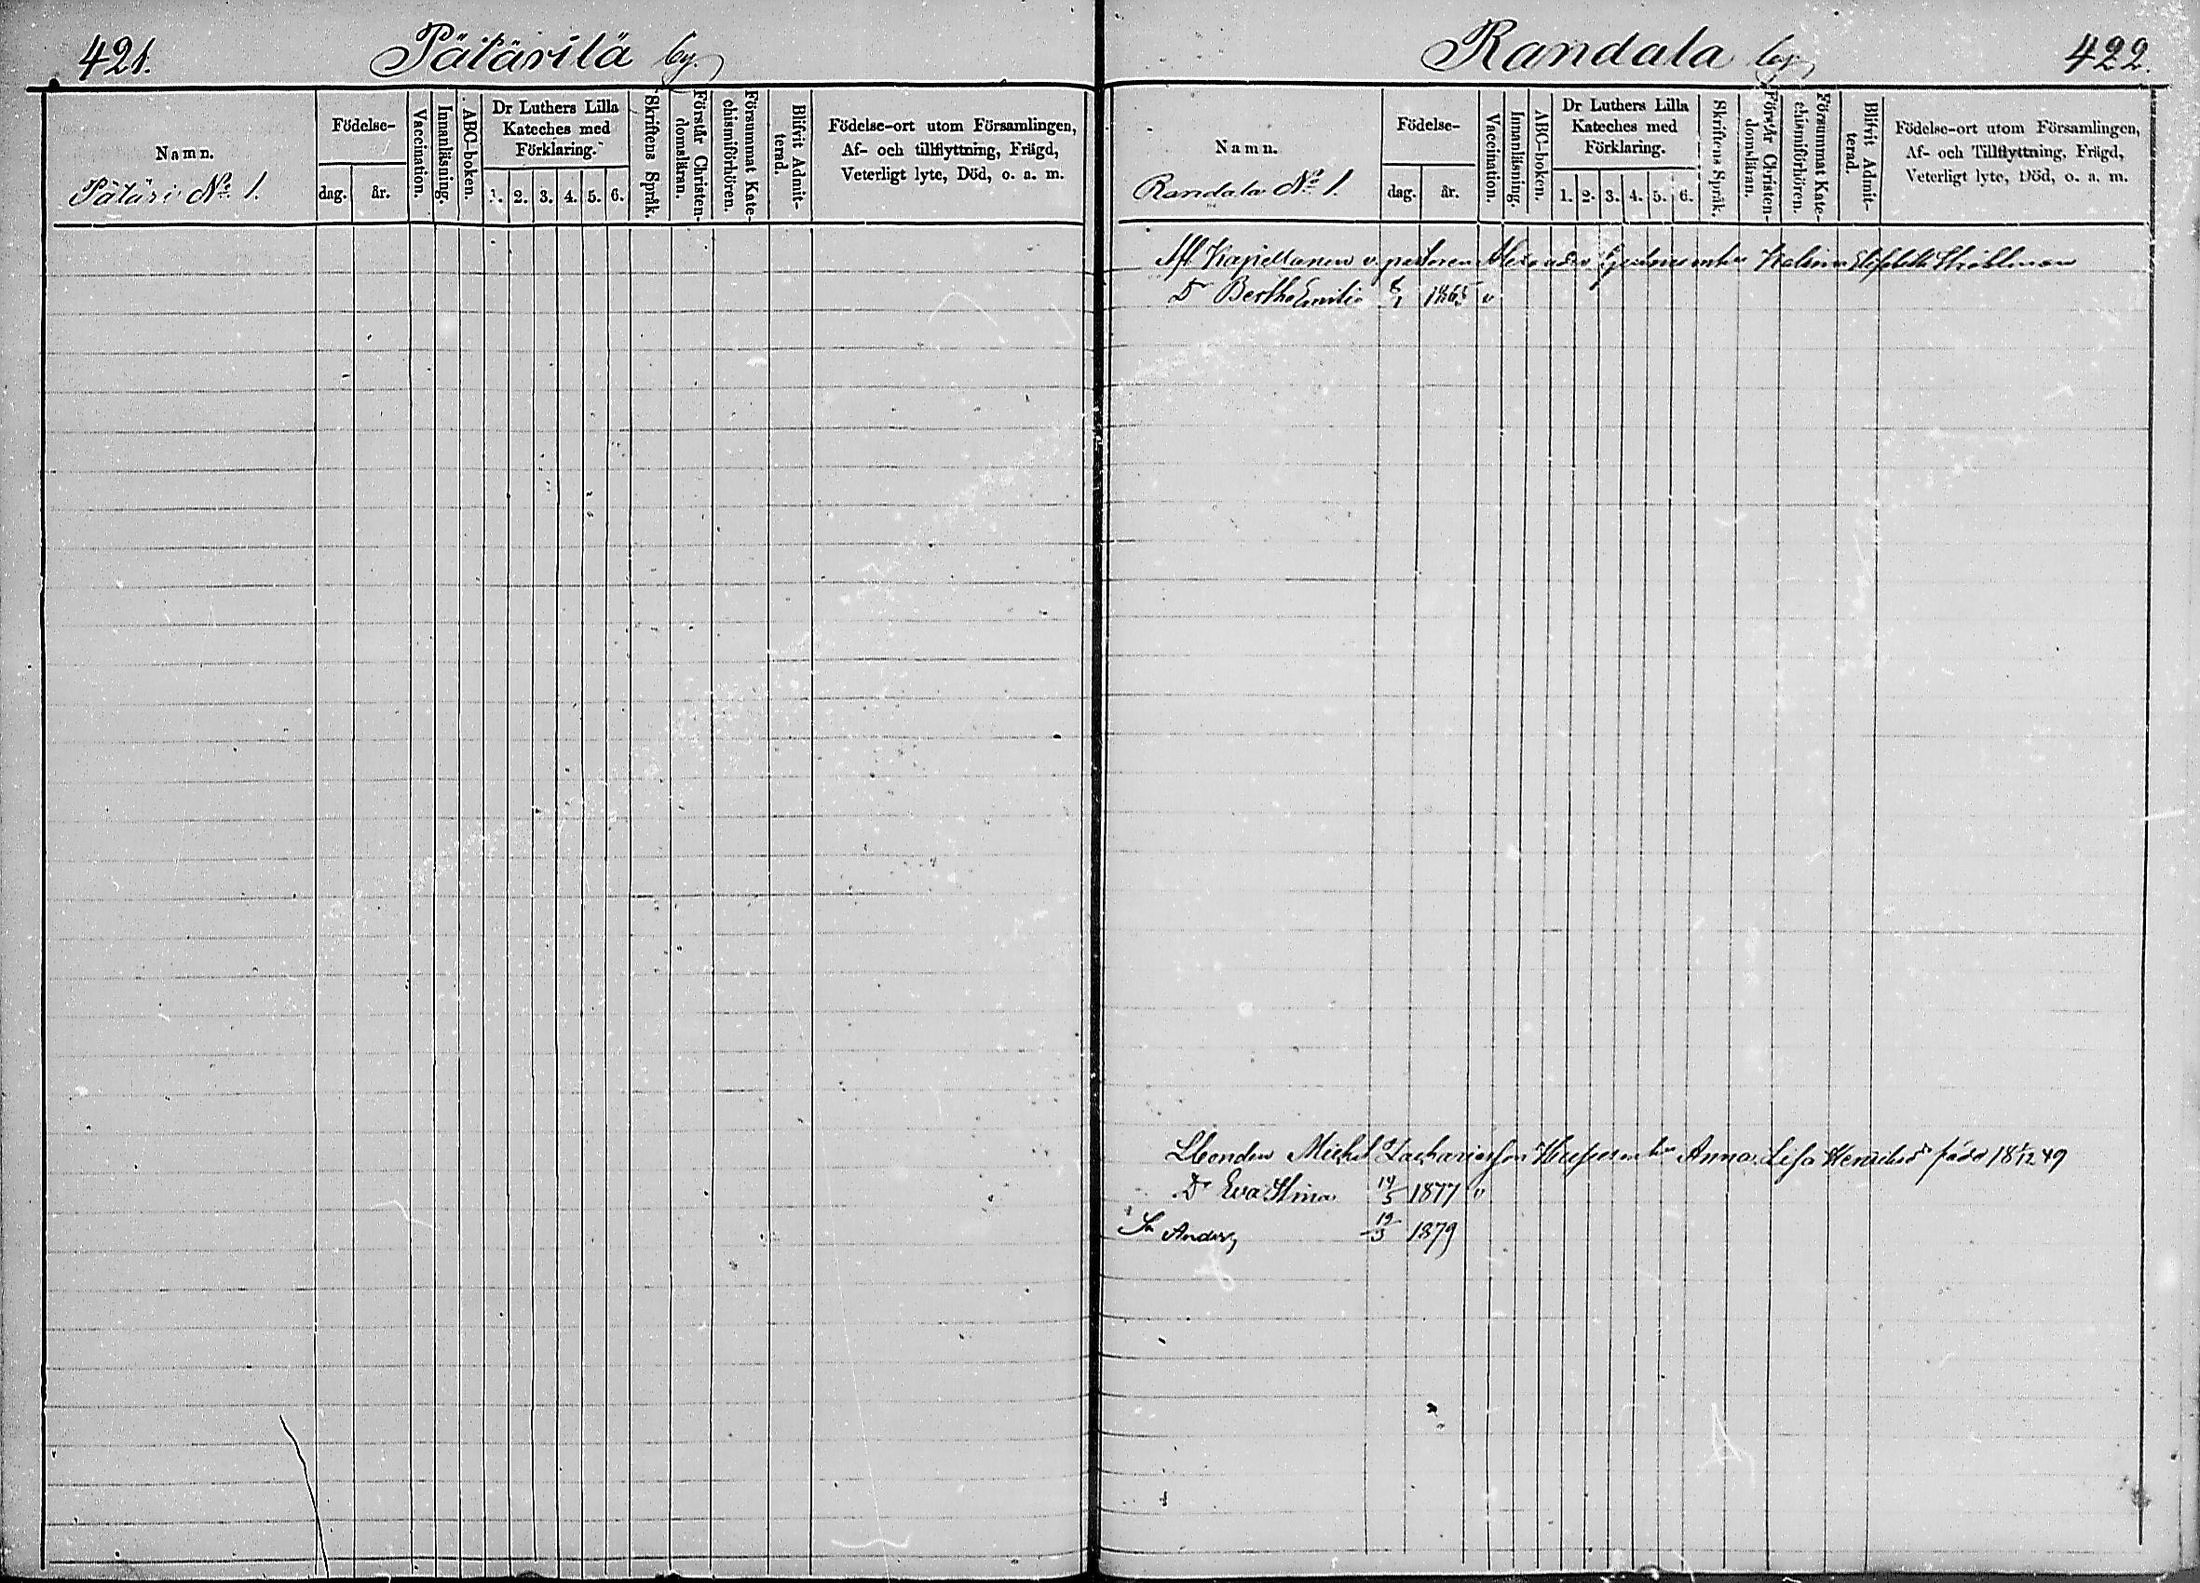 421.
Pätärilä by.
Namn.
Pätäri No 1.
Födelse-
dag. år.
Vaccination.
Innanläsning.
ABC-boken.
Dr Luthers Lilla
Kateches med
Förklaring.
1. 2. 3. 4. 5. 6.
Skriftens Språk.
Förstår Christen-
domsläran.
Försummat Kate-
chismiförhören.
Blifvit Admit-
terad.
Födelse-ort utom Församlingen,
Af- och tillflyttning, Frägd,
Veterligt lyte, Död, o. a. m.
Randala by
422.
Namn.
Randala No 1.
Födelse-
dag. år.
Vaccination.
Innanläsning.
ABC-boken.
Dr Luthers Lilla
Kateches med
Förklaring.
1. 2. 3. 4. 5. 6.
Skriftens Språk.
Förstår Christen-
domsläran.
Försummat Kate-
chismiförhören.
Blifvit Admit-
terad.
Födelse-ort utom Församlingen,
Af- och Tillflyttning, Frägd,
Veterligt lyte, Död, o. a. m.
Afl Kapellanen v. pastoren Alexander Hustru
Dr Bertha Emilia 1865 v
Michel Zachariasson Anna Lisa född 18 1/12 49
Dr Eva Stina 14/5 1877 v
Sn Anders 19/3 1879